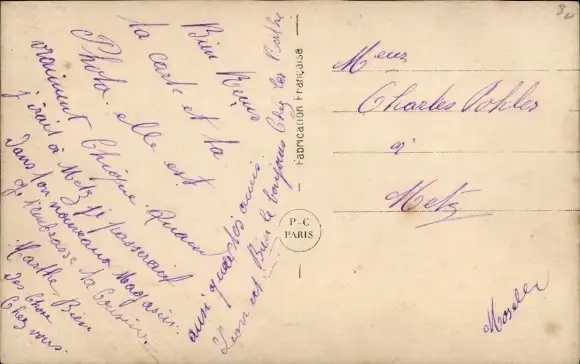 Bien Reçus
ta carte et ta
Photo. elle est
vraiment Chique. Quand
j'irait à Metz je passerait
dans ton nouveau Magasin.
J'embrasse ta Cousine.
Marthe Bien
des Chose
Chez vous.
ainsi qu'à tes amis.
Bien le bonjour Chez les Berthe
Fabrication Française
P-C
PARIS
Meur
Charles Pohler
à
Metz
Moselle